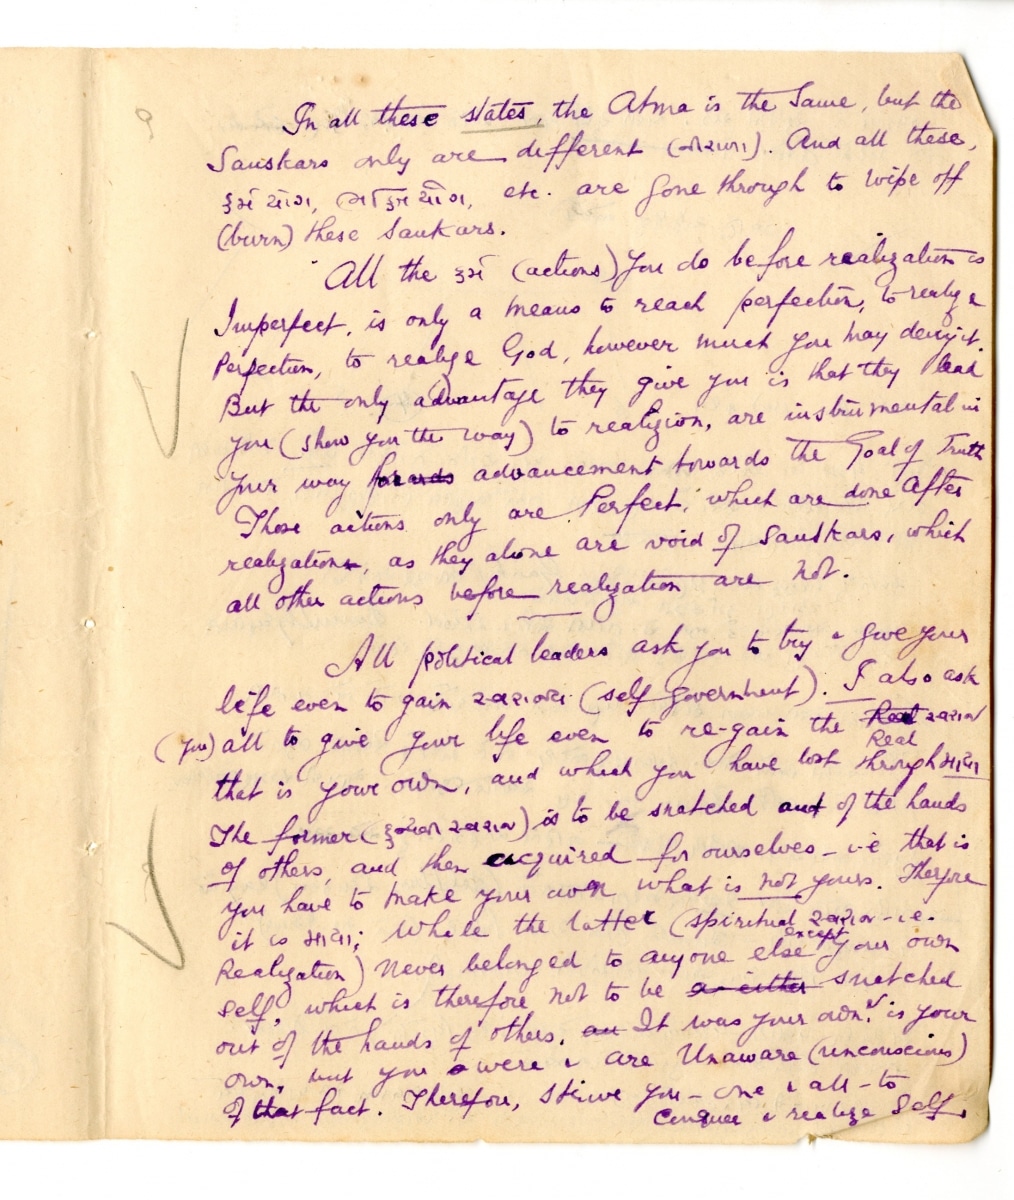 In all these states, the Atma is the Same, but the
Sauskars only are different (નોરાળા). And all these,
કર્મ યોગ, ભક્તિ યોગ, etc. are gone through to wipe off
(burn) these Sauskars.
All the કર્મ (actions) you do before realization is
Imperfect, is only a means to reach perfection, to realize
Perfection, to realize God, however much you may deny it.
But the only advantage they give you is that they lead
you (show you the way) to realizion, are instrumental in
your way forards advancement towards the Goal of Truth
Those actions only are Perfect, which are done After
realization, as they alone are void of Sauskars, which
all other actions before realization are not.
All political leaders ask you to try & give your
life even to gain સ્વરાજ્ય (self government). I also ask
(you) all to give your life even to re-gain the Real સ્વરાજ
Real
that is your own, and which you have lost through માયા
The former (દુન્યવી સ્વરાજ) is to be snatched out of the hands
of others, and then acquired for ourselves - i.e that is
you have to make your own what is not yours. Therefore
it is માયા; While the latter (spiritual સ્વરાજ - i.e.
Realization) Never belonged to anyone else except your own
Self, which is therefore not to be a either snatched
out of the hands of others, an It was your own, & is your
own, but you were & are Unaware (unconscious)
of that fact. Therefore, strive you - one & all - to
Conquer & realize Self.